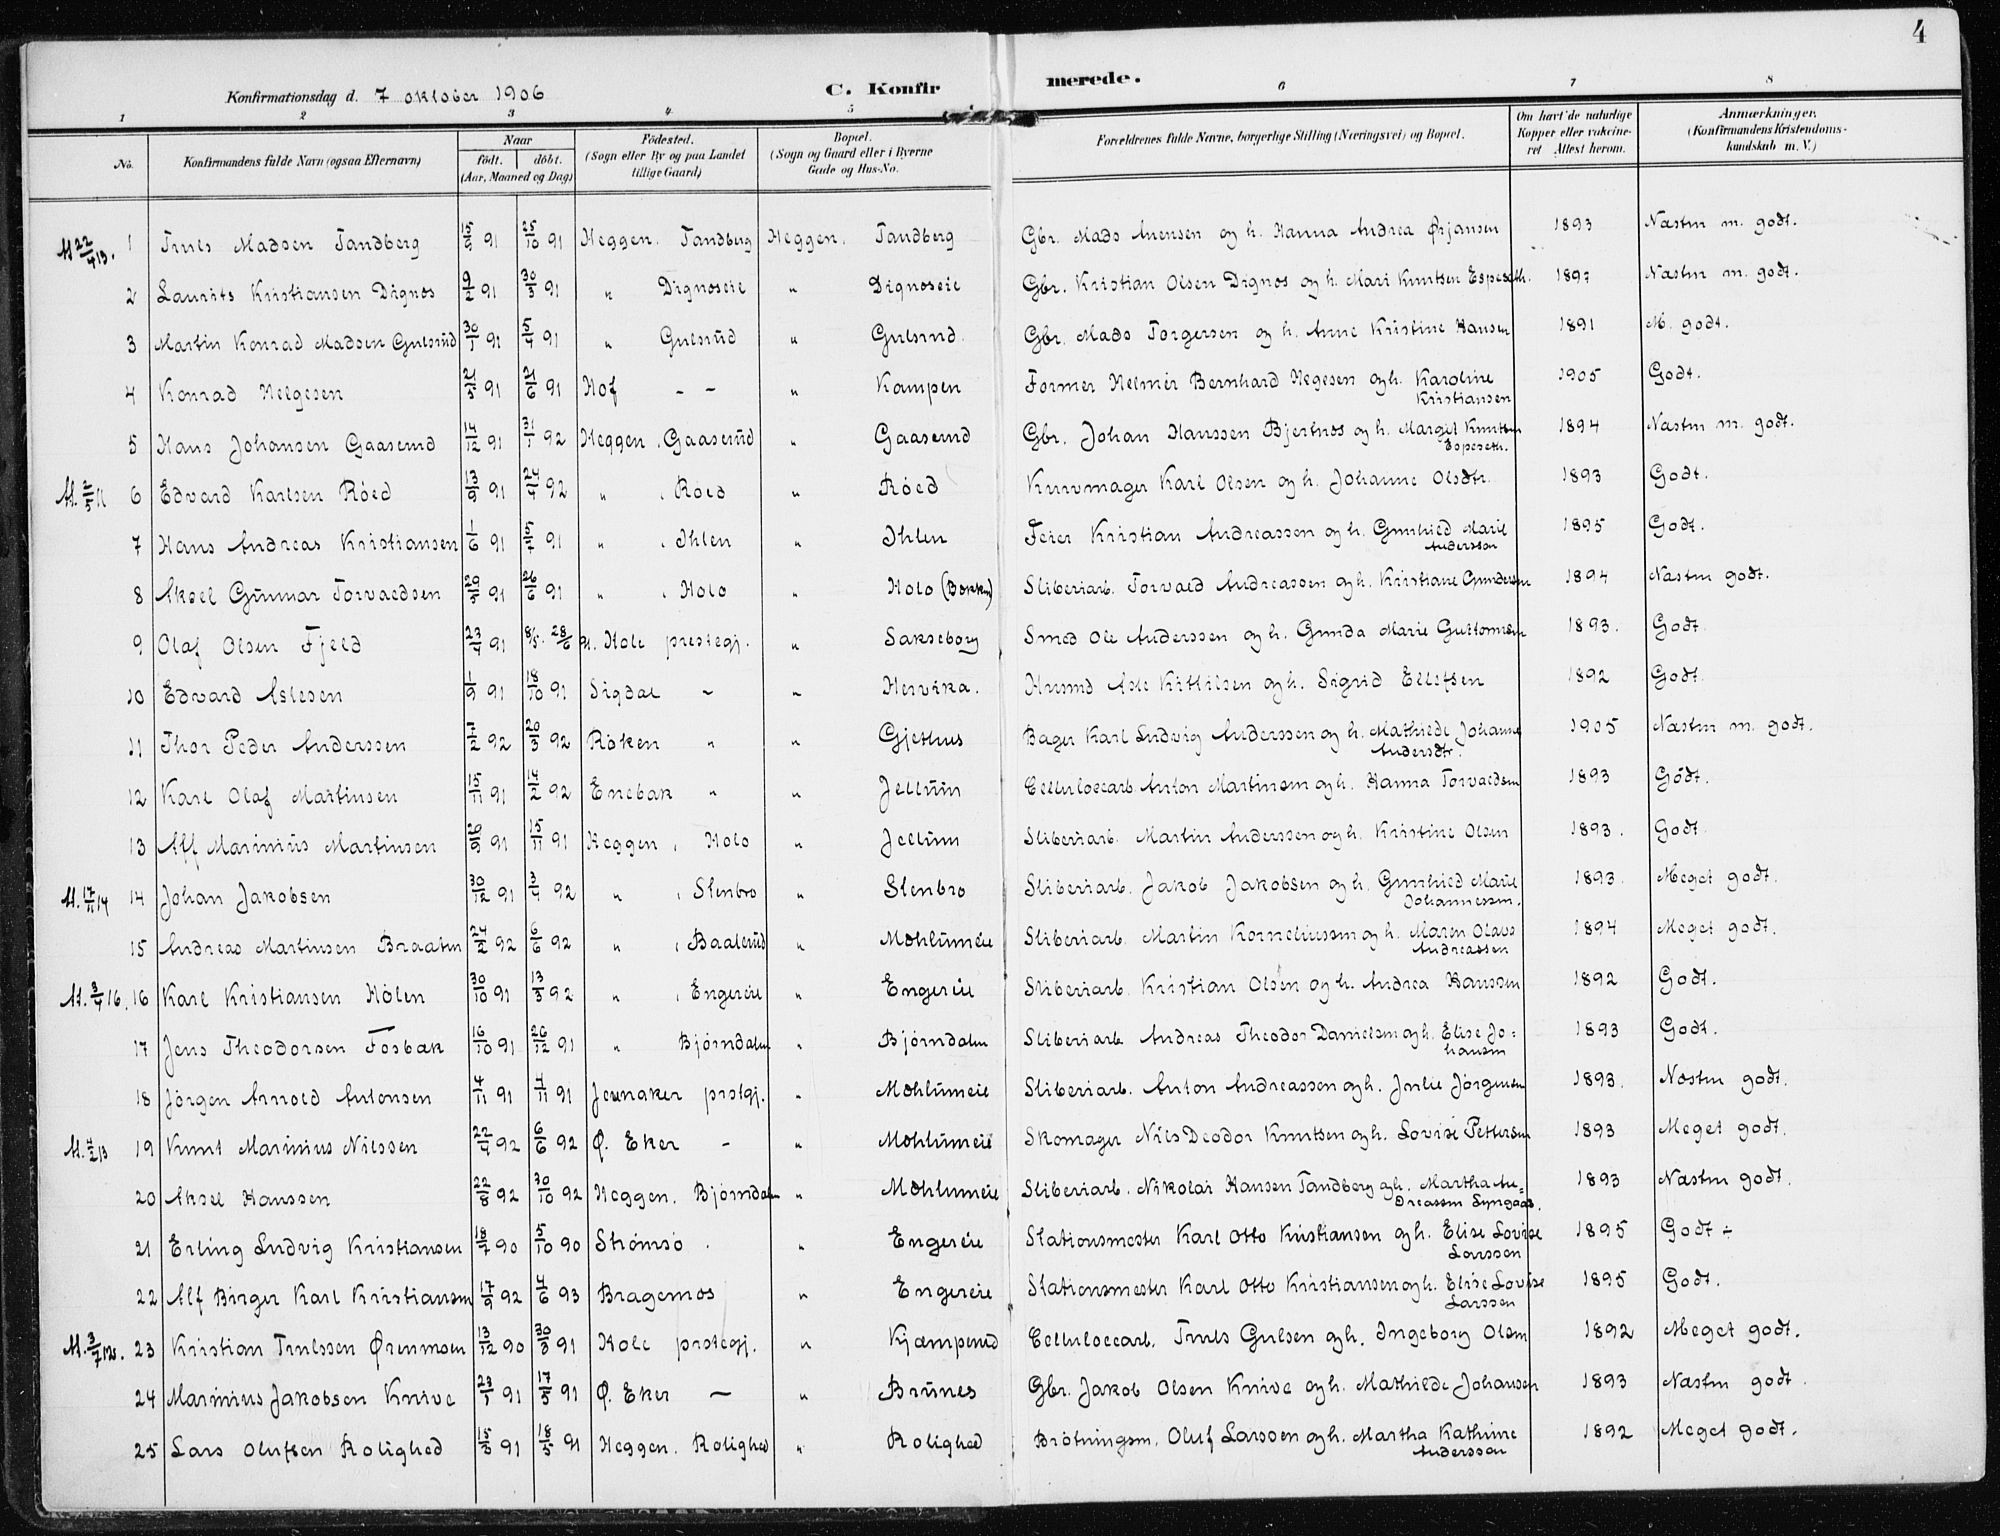 4
Konfirmationsdag d. 7 oktober 1906 C. Konfirmerede.
1 2 3 4 5 6 7 8
No. Konfirmandens fulde Navn (ogsaa Efternavn) Naar født. døbt. (Aar, Maaned og Dag) Fødested. (Sogn eller By og paa Landet tillige Gaard) Bopæl. (Sogn og Gaard eller i Byerne Gade og Hus-No. Forældrenes fulde Navne, borgerlige Stilling (Næringsvei) og Bopæl. Om havt de naturlige Kopper eller vakcineret Attest herom. Anmærkninger. (Konfirmandens Kristendomskundskab m. V.)
At 22/4 13. 1 Truls Madsen Tandberg 15/9 91 25/10 91 Heggen. Tandberg Heggen. Tandberg Gbr. Mads Arensen og h. Hanna Andrea Ørjansen 1893 Næsten m. godt.
2 Laurits Kristiansen Dignæs 9/2 91 30/3 91 " Dignæseie " Dignæseie Gbr. Kristian Olsen Dignæs og h. Mari Knutsen Espeseth. 1897 Næsten m. godt.
3 Martin Konrad Madsen Gulsrud 30/1 91 5/4 91 " Gulsrud " Gulsrud. Gbr. Mads Torgersen og h. Anne Kristine Hansen 1891 M. godt.
4 Konrad Helgesen 91 21/6 91 Hof - - " Kampen Former Helmer Bernhard Hegesen og h. Karoline Kristiansen 1905 Godt.
5 Hans Johansen Gaaserud 14/12 91 31/1 92 Heggen, Gaaserud " Gaaserud Gbr. Johan Hanssen Bjertnæs og h. Marget Knutsen Espeseth. 1894 Næsten m. godt.
At. 2/5 11 6 Edvard Karlsen Røed 13/9 91 24/4 92 " , Røed " Røed Kurvmager Karl Olsen og h. Johanne Olsdtr. 1893 Godt.
7 Hans Andreas Kristiansen 1/6 91 5/7 91 " , Ihlen " Ihlen Feier Kristian Andreassen og h. Gunhild Marie Anderssen 1895 Godt.
8 Aksel Gunnar Torvaldsen 29/5 91 26/6 91 " , Holo " Holo (Bakken) Sliberiarb. Torvald Andreassen og h. Kristiane Gundersen 1894 Næsten godt.
9 Olaf Olsen Fjeld 23/4 91 8/5. 28/6 91. Hole prestegj. " Sakseborg Smed Ole Anderssen og h. Gunda Marie Guttormsen 1893. Godt.
10 Edvard Aslesen 1/9 91 18/10 91 Sigdal - " Hervika. Husmd Asle Kittilsen og h. Sigrid Ellefsen 1892 Godt.
11 Thor Peder Anderssen 92 20/3 92 Røken " " Gjethus Bager Karl Ludvig Anderssen og h. Mathilde Johanne Andersdtr. 1905 Næsten m. godt.
12 Karl Olaf Martinsen 15/11 91 14/2 92 Enebak " " Jellum Celluloccarb. Anton Martinsen og h. Hanna Torvaldsen 1893 Godt.
13 Alf Marinius Martinsen 26/9 91 15/11 91 Heggen, Holo " Jellum Sliberiarb. Martin Anderssen og h. Kristine Olsen 1893. Godt.
At. 17/11 14 14 Johan Jakobsen 30/12 91 3/4 92 " , Stenbro " Stenbro Sliberiarb. Jakob Jakobsen og h. Gunhild Marie Johannessen. 1893. Meget godt.
15 Andreas Martinsen Braaten 24/2 92 6/6 92 " , Baalsrud " Mæhlumeie Sliberiarb. Martin Korneliussen og h. Maren Olava Andreassen 1894 Meget godt.
At. 3/4 16. 16 Karl Kristiansen Hølen 30/10 91 13/3 92 " , Engereie " Engereie Sliberiarb. Kristian Olsen og h. Andrea Hanssen 1892 Godt.
17 Jens Theodorsen Fosbak 16/10 91 26/12 91 " Bjørndalen " Bjørndalen Sliberiarb. Andreas Theodor Danielsen og h. Elise Johansen 1893 Godt.
18 Jørgen Arnold Antonsen 4/11 91 4/11 91 Jevnaker prstgj. " Mæhlumeie Sliberiarb. Anton Andreassen og h. Julie Jørgensen 1893. Næsten godt.
At. 4/2 13 19 Knut Marinius Nilssen 22/4 92 6/6 92 Ø. Eker - " Mæhlumeie Skomager Nils Deodor Knutsen og h. Lovise Pettersen 1893 Meget godt.
20 Aksel Hanssen 22/8 92 30/10 92 Heggen. Bjørndalen " Mæhlumeie Sliberiarb. Nikolai Hansen Tandberg og h. Martha Andreassen Lyngaas. 1893 Næsten godt.
21 Erling Ludvig Kristiansen 18/7 90 5/10 90 Strømsø . " Engereie Stationsmester Karl Otto Kristiansen og h. Elise Lovise Larssen 1895 Godt ÷
22 Alf Birger Karl Kristiansen 17/9 92 4/6 93 Bragernæs " Engereie Stationsmester Karl Otto Kristiansen og h. Elise Lovise Larssen 1895 Godt.
At. 3/7 12. 23 Kristian Trulssen Ørenmoen 13/12 90 30/3 91 Hole prstegj. " Kjæmperud Celluloccarb. Truls Gulsen og h. Ingeborg Olsen 1892 Meget godt.
24 Marinius Jakobsen Knive 23/1 91 17/5 91 Ø. Eker - " Brunes Gbr. Jakob Olsen Knive og h. Mathilde Johansen 1893 Næsten godt.
25 Lars Olufsen Rolighed 15/3 91 18/5 91 Heggen. Rolighed " Rolighed Brøtningsm. Oluf Larssen og h. Martha Kathrine Anderssen 1892 Meget godt.